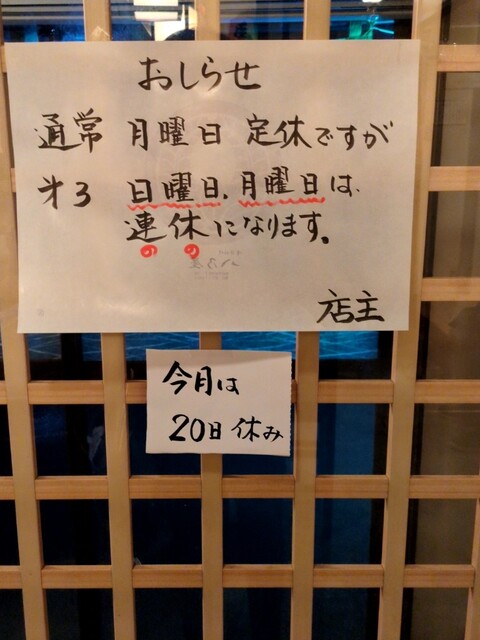 おしらせ
通常 月曜日 定休ですが
才3 日曜日、月曜日は、
連休になります。
店主
今月は
20日 休み